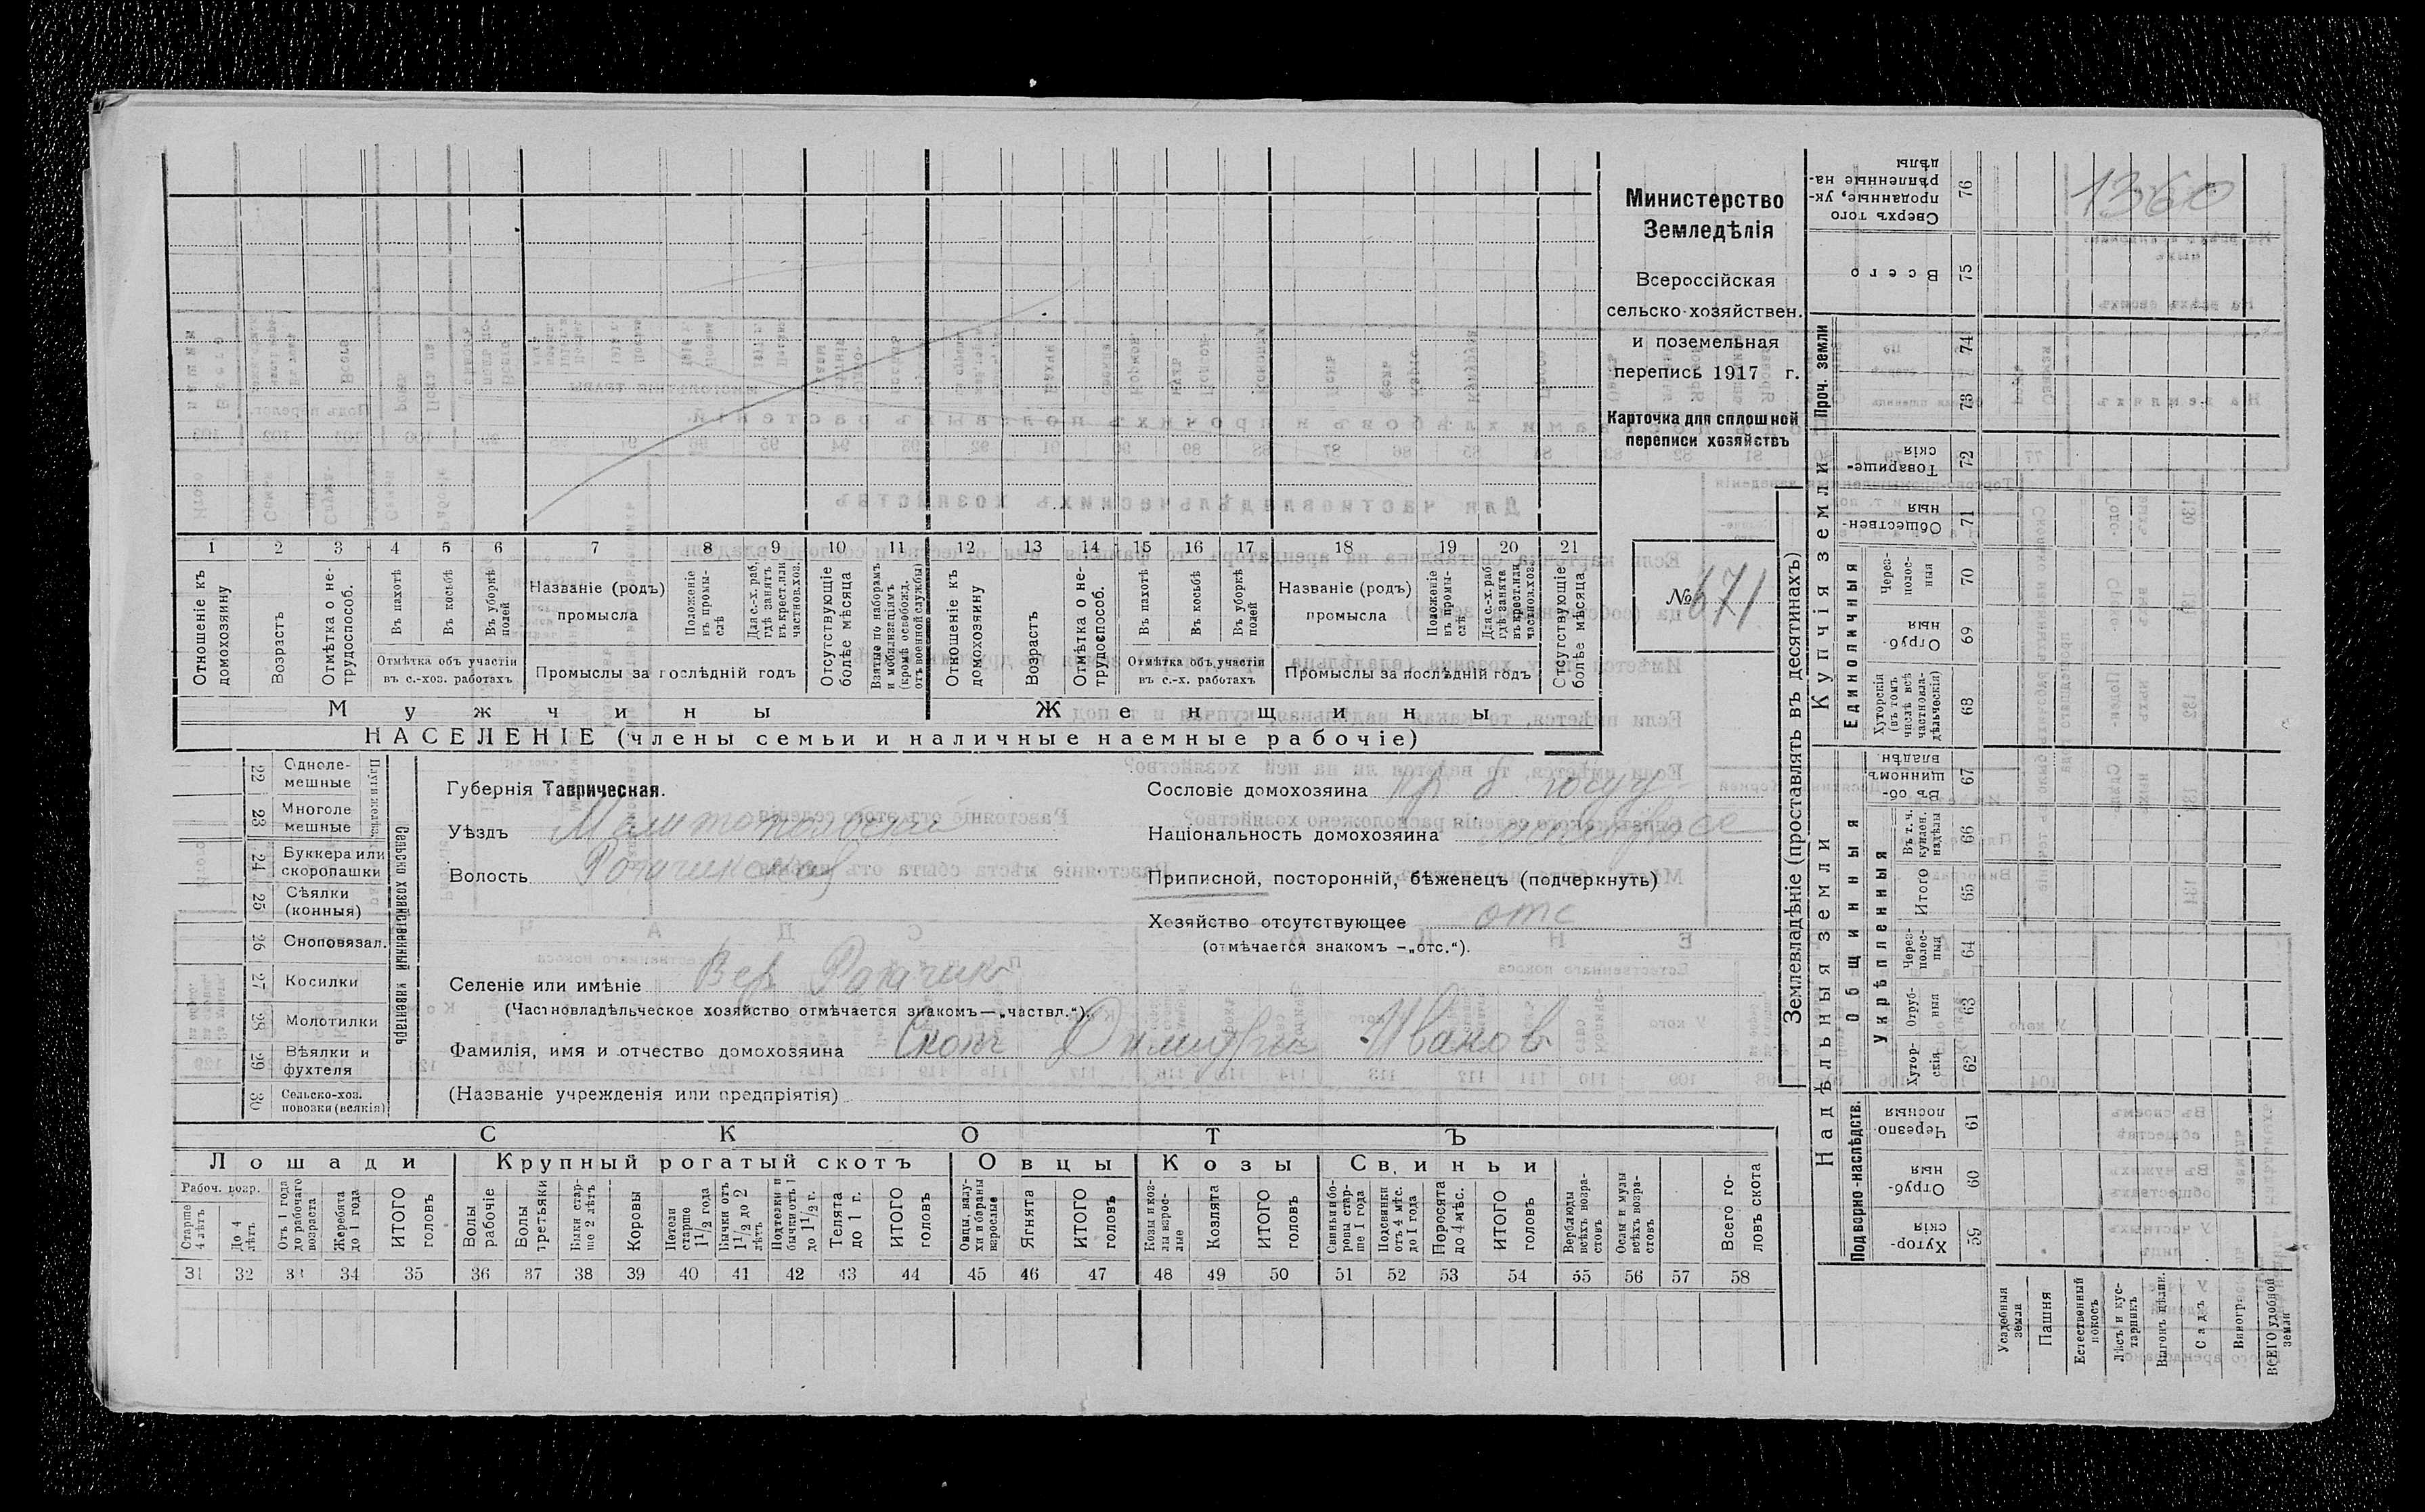 1360
Министерство
Земледѣлія
Всероссійская
сельско-хозяйствен.
и поземельная
перепись 1917 г.
Карточка для сплошной
переписи хозяйствъ
№ 671
1 2 3 4 5 6 7 8 9 10 11 12 13 14 15 16 17 18 19 20 21
Отношеніе къ домохозяину
Возрастъ
Отмѣтка о нетрудоспособ.
Въ пахотѣ
Въ косьбѣ
Въ уборкѣ полей
Отмѣтка объ участіи
въ с.-хоз. работахъ
Названіе (родъ)
промысла
Положеніе въ промыслѣ
Для с.-х. раб. гдѣ занятъ въ крест. или частнов. хоз.
Промыслы за послѣдній годъ
Отсутствующіе болѣе мѣсяца
Взятые по наборамъ и мобилизаціямъ (кромѣ освобожд. отъ военной службы)
Отношеніе къ домохозяину
Возрастъ
Отмѣтка о нетрудоспособ.
Въ пахотѣ
Въ косьбѣ
Въ уборкѣ полей
Отмѣтка объ участіи
въ с.-х. работахъ
Названіе (родъ)
промысла
Положеніе въ промыслѣ
Для с.-х. раб. гдѣ занята въ крест. или частнов. хоз.
Промыслы за послѣдній годъ
Отсутствующіе болѣе мѣсяца
Мужчины
Женщины
НАСЕЛЕНІЕ (члены семьи и наличные наемные рабочіе)
22 Одноле-
мешные
23 Многоле
мешные
24 Буккера или
скоропашки
25 Сѣялки
(конныя)
26 Сноповязал.
27 Косилки
28 Молотилки
29 Вѣялки и
фухтеля
30 Сельско-хоз.
повозки (всякія)
Сельско хозяйственный инвентарь
Губернія Таврическая.
Уѣздъ Мелитопольскій
Волость Рогачикская
Селеніе или имѣніе Вер Рогачик
(Частновладѣльческое хозяйство отмѣчается знакомъ—„частвл.“).
Фамилія, имя и отчество домохозяина Димитрій Иванов
(Названіе учрежденія или предпріятія)
Сословіе домохозяина кр б госуд
Національность домохозяина
Приписной, посторонній, бѣженецъ (подчеркнуть)
Хозяйство отсутствующее отс
(отмѣчается знакомъ —„отс.“).
СКОТЪ
Лошади
Крупный рогатый скотъ
Овцы
Козы
Свиньи
Рабоч. возр.
Старше 4 лѣтъ
До 4 лѣтъ
Отъ 1 года до рабочаго возраста
Жеребята до 1 года
ИТОГО головъ
Волы рабочіе
Волы третьяки
Быки старше 2 лѣтъ
Коровы
Нетели старше 1 1/2 года
Быки отъ 1 1/2 до 2 лѣтъ
Подтелки и бычки отъ 1 до 1 1/2 г.
Телята до 1 г.
ИТОГО головъ
Овцы, валухи и бараны взрослые
Ягнята
ИТОГО головъ
Козы и козлы взрослые
Козлята
ИТОГО головъ
Свиньи и боровы старше 1 года
Подсвинки отъ 4 мѣс. до 1 года
Поросята до 4 мѣс.
ИТОГО головъ
Верблюды всѣхъ возрастовъ
Ослы и мулы всѣхъ возрастовъ
Всего головъ скота
31 32 33 34 35 36 37 38 39 40 41 42 43 44 45 46 47 48 49 50 51 52 53 54 55 56 57 58
Землевладѣніе (проставлять въ десятинахъ)
Надѣльныя земли
Купчія земли
Проч. земли
Подворно-наслѣдств.
Общинныя
Укрѣпленныя
Единоличныя
Сверхъ того проданные, укрѣпленные надѣлы 76
Всего 75
74
73
Товарищескія 72
Общественныя 71
Черезполосныя 70
Отрубныя 69
Хуторскія (въ томъ числѣ всѣ частновладѣльческія) 68
Въ общинномъ владѣн. 67
Въ т. ч. куплен. надѣлы 66
Итого 65
Черезполосныя 64
Отрубныя 63
Хуторскія 62
Черезполосныя 61
Отрубныя 60
Хуторскія 59
Усадебныя земли
Пашня
Естественный покосъ
Лѣсъ и кустарникъ
Выгонъ цѣлин.
Садъ
Виногр.
ВСЕГО удобной земли